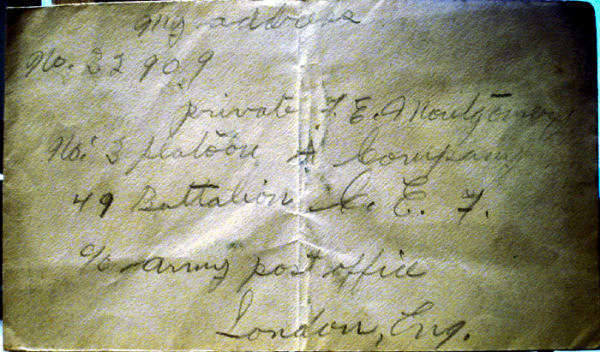 my address
No. 22 90 9
private F. E. Montgomery
No. 3 platoon A Company
49 Battalion C. E. F.
c/o army post office
London, Eng.